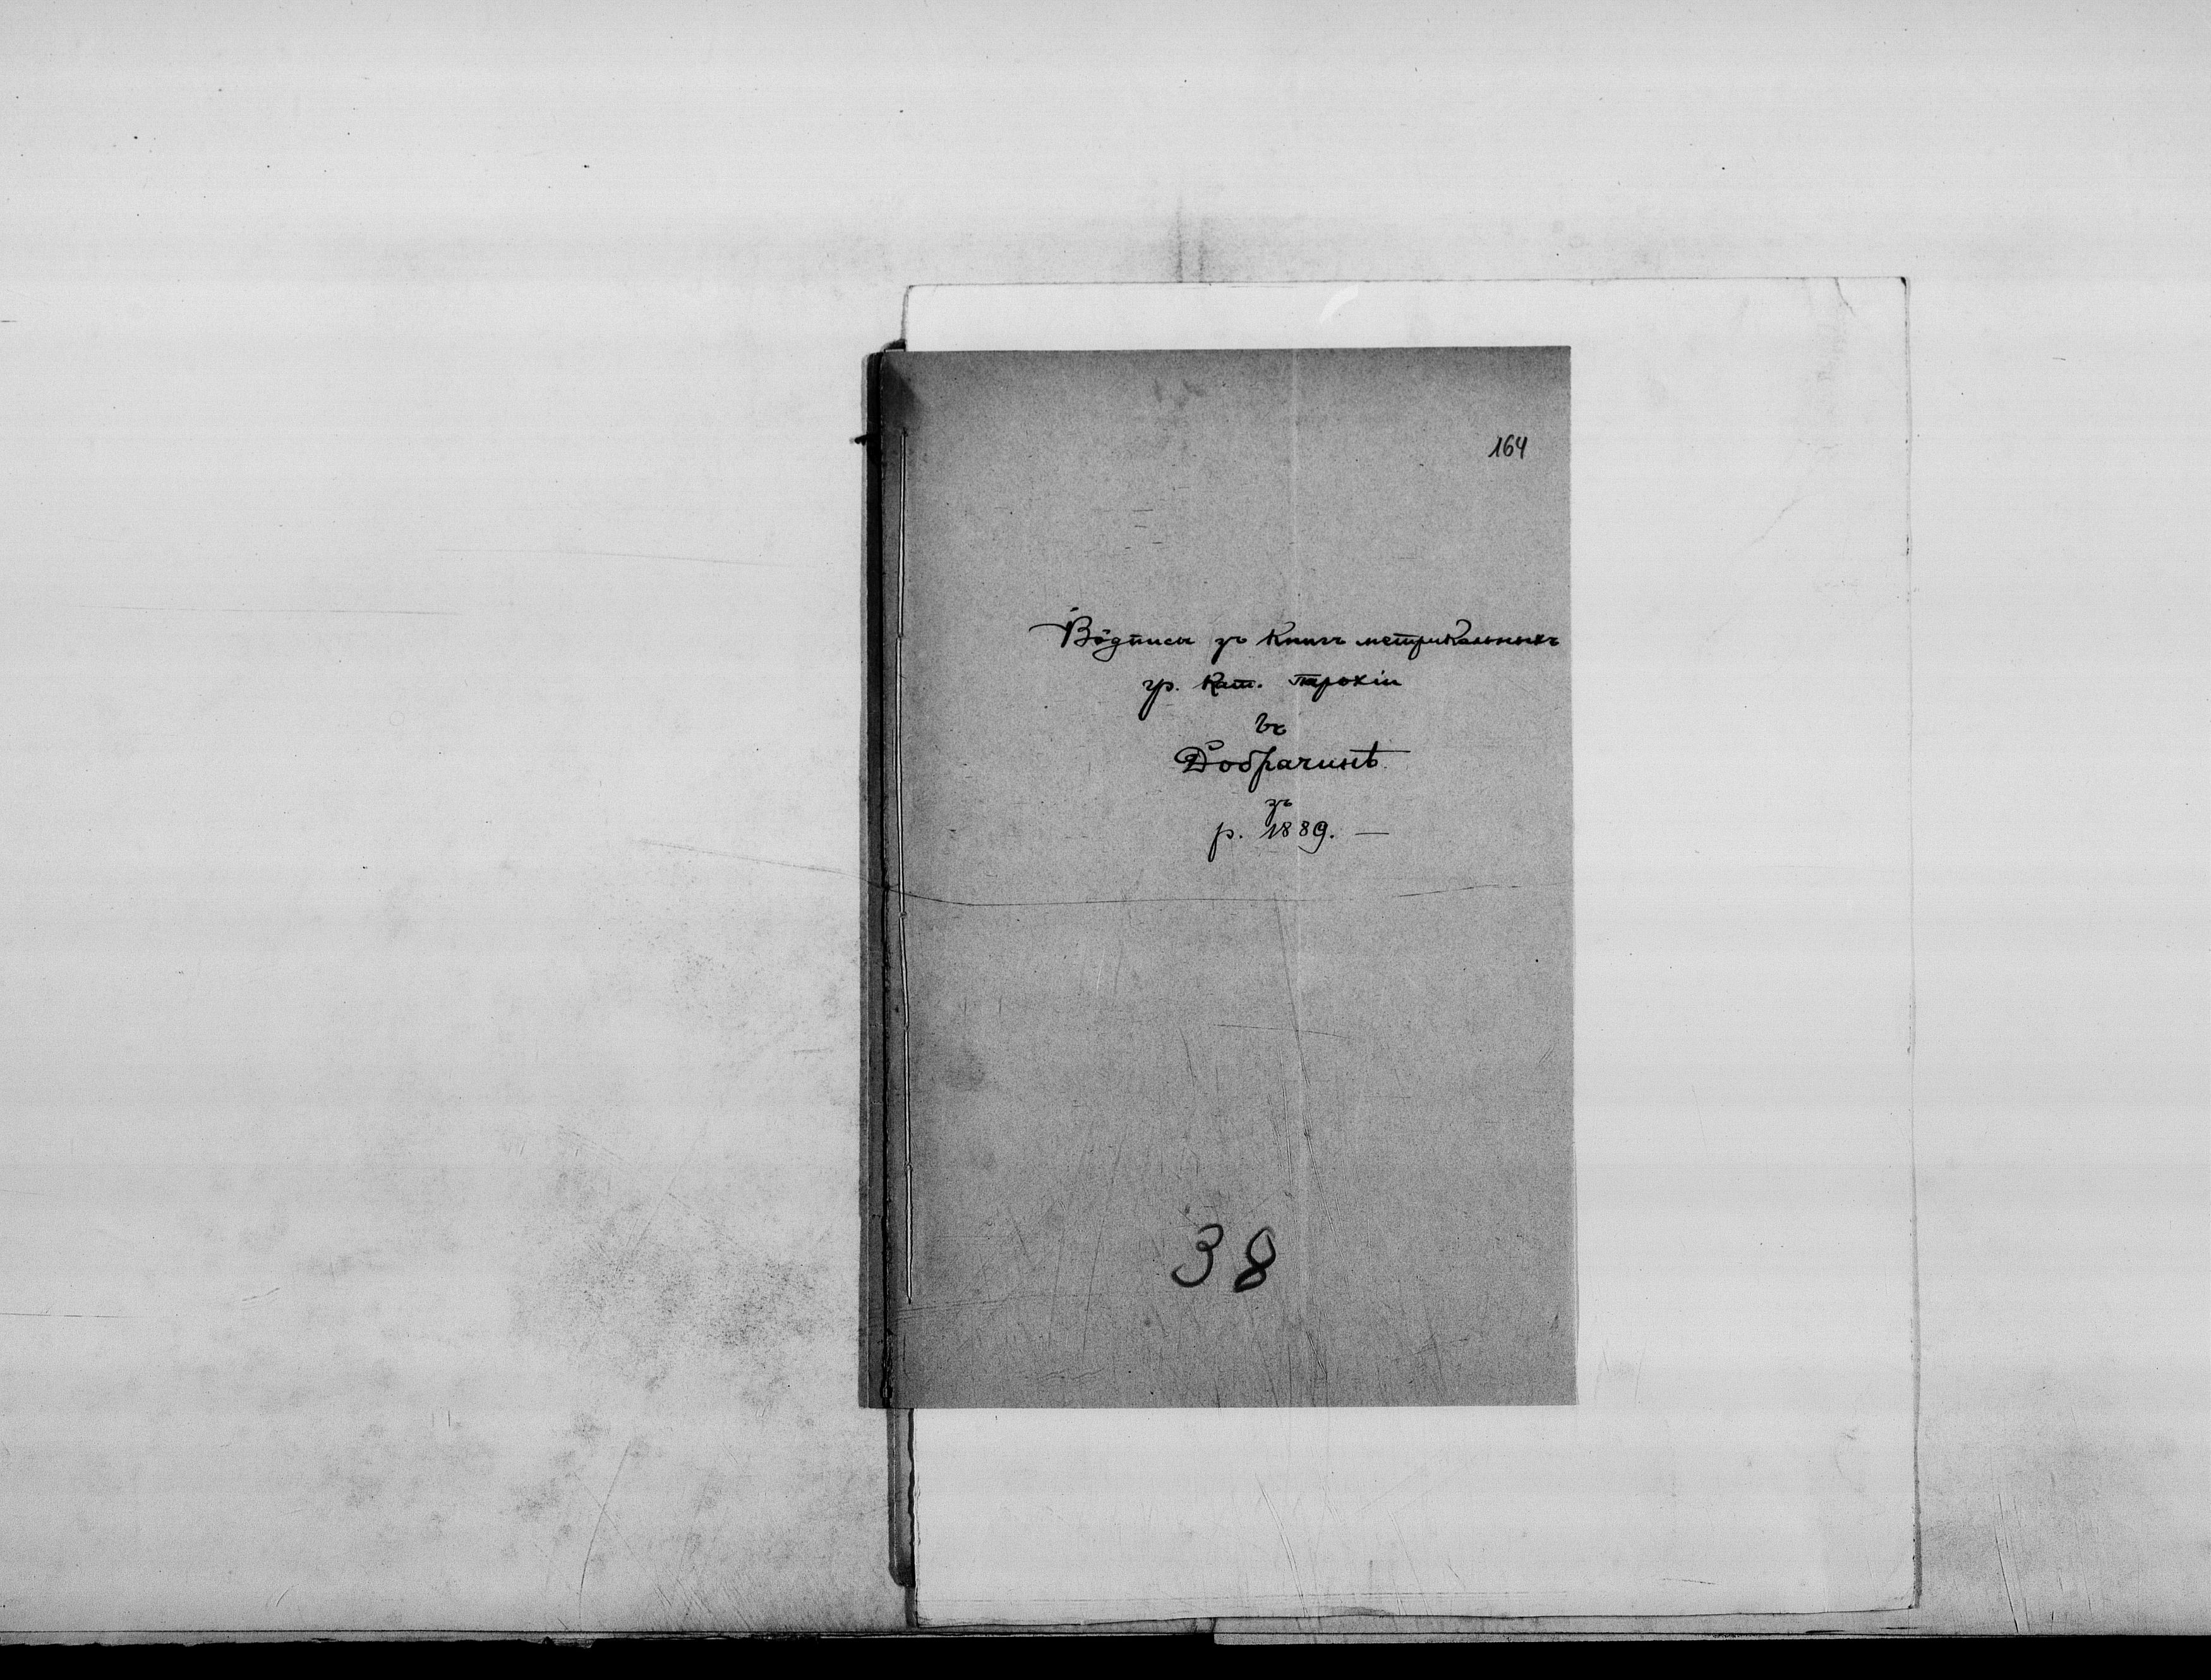 164
Вôдписи зъ Книгъ метрикальныхъ
гр. Кат. парохіи
въ
Добрачинѣ
зъ
р. 1889. —
38